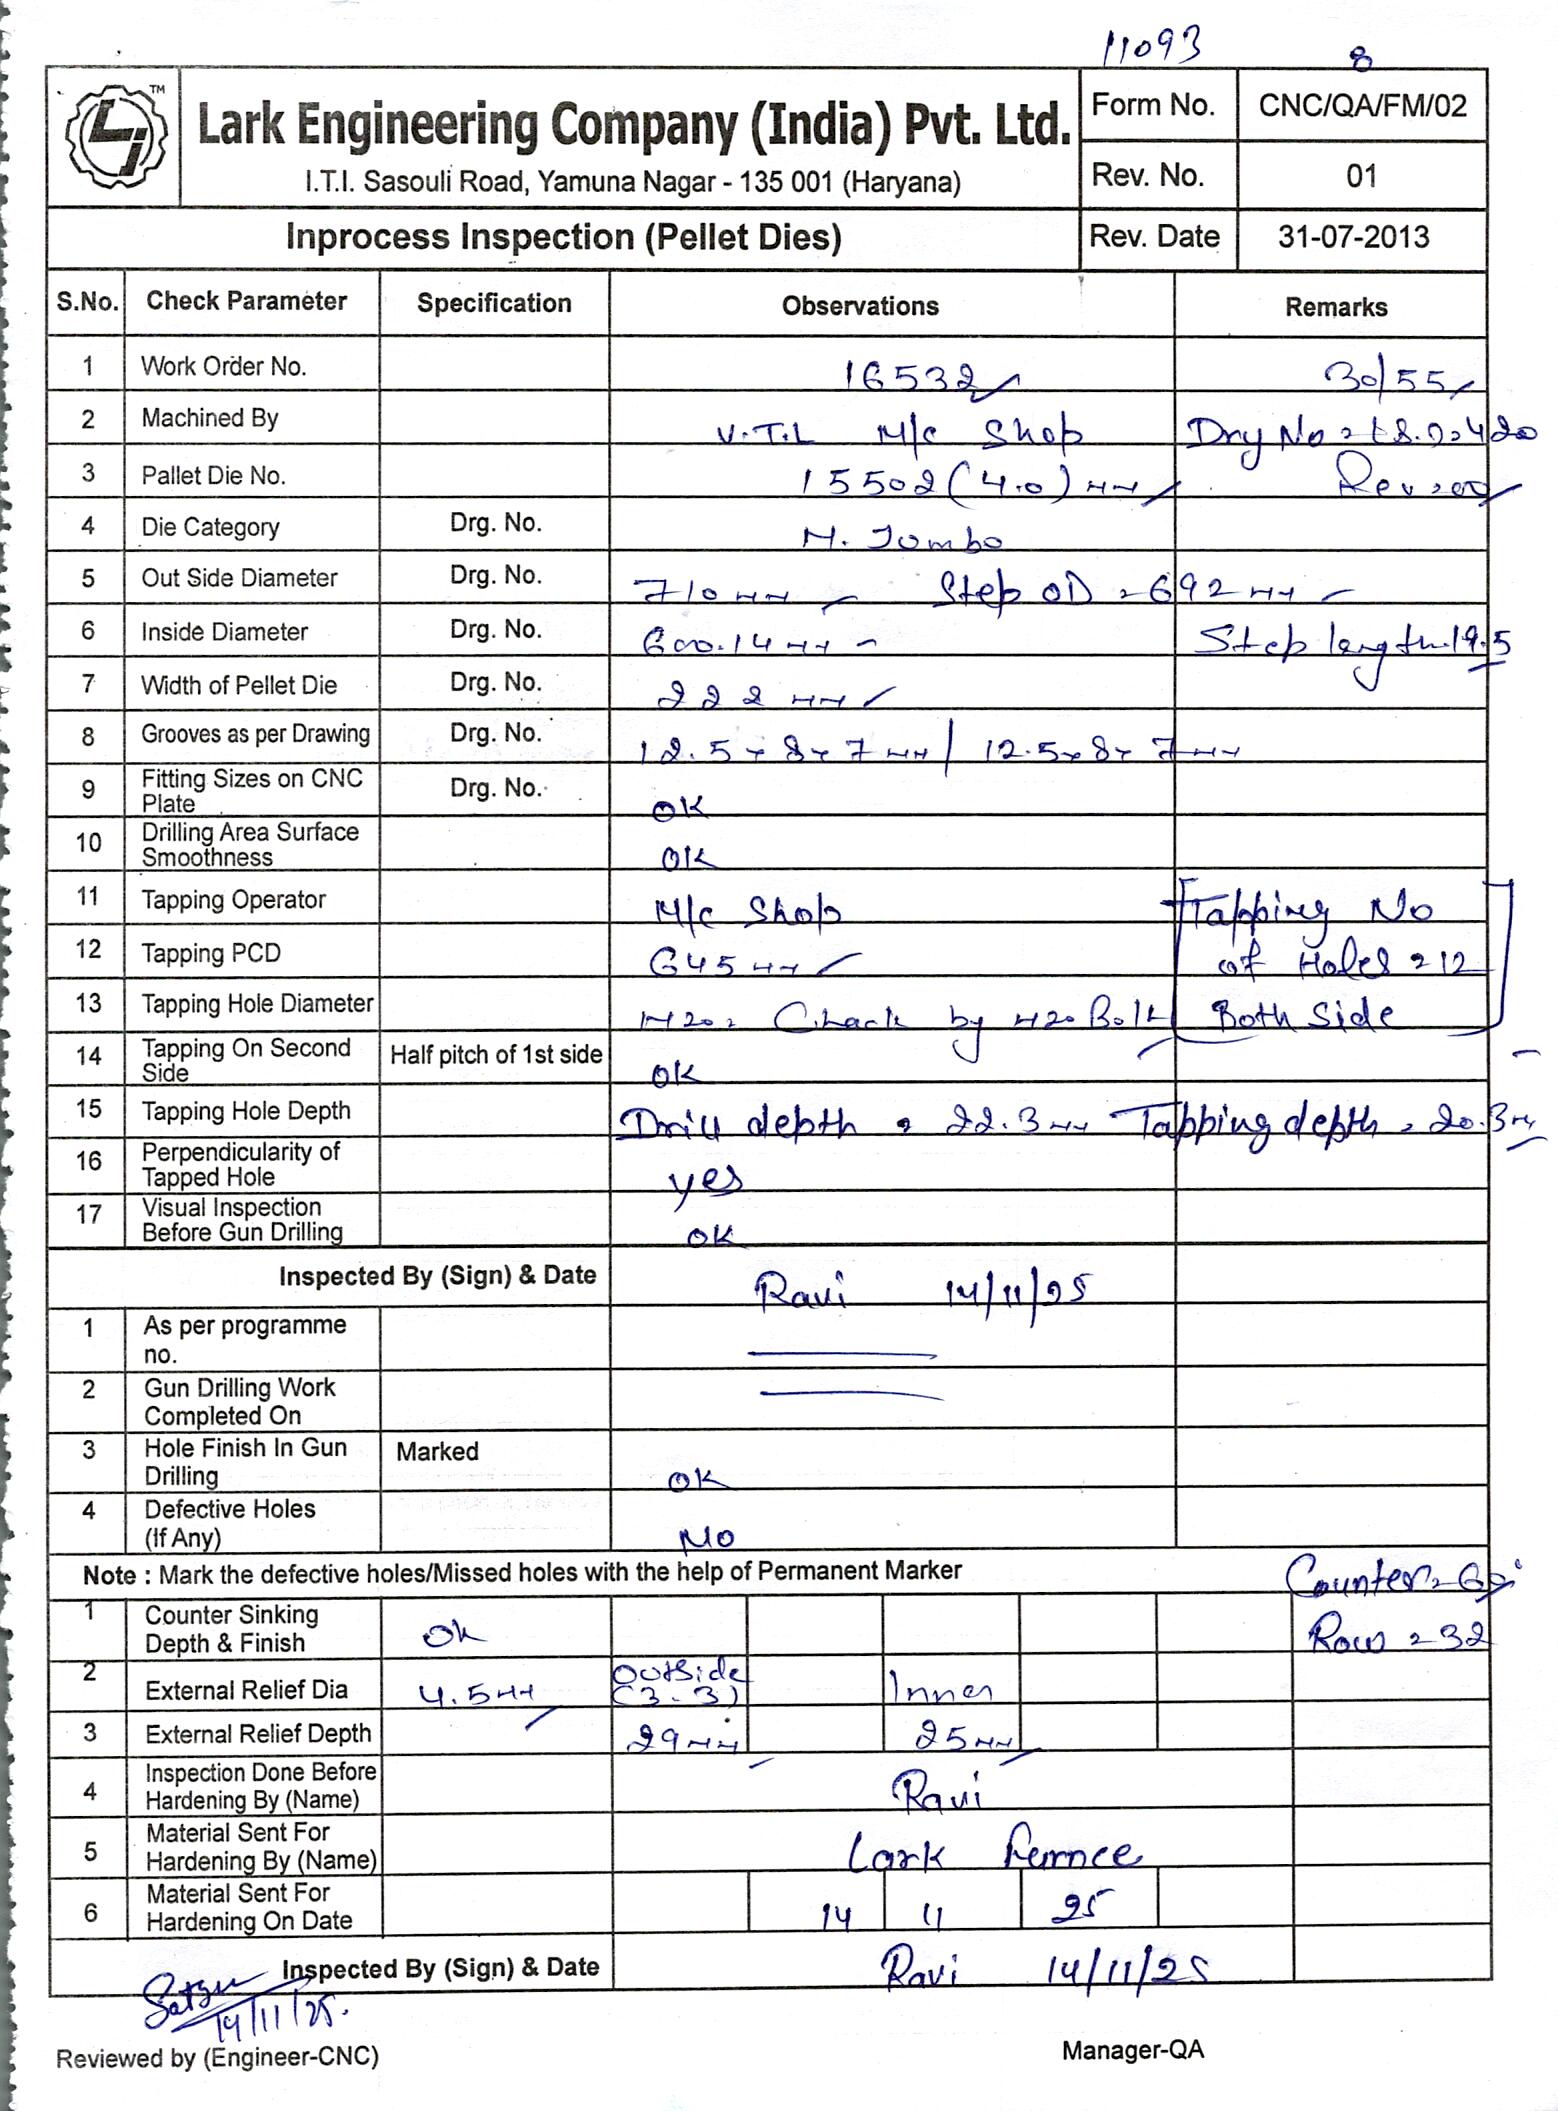 11093 8
TM
Lark Engineering Company (India) Pvt. Ltd.
I.T.I. Sasouli Road, Yamuna Nagar - 135 001 (Haryana)
Form No. CNC/QA/FM/02
Rev. No. 01
Inprocess Inspection (Pellet Dies)
Rev. Date 31-07-2013
S.No. Check Parameter Specification Observations Remarks
1 Work Order No. 16532 30/55
2 Machined By V.T.L M/c Shop Drg No =
3 Pallet Die No. 15502 (4.0) mm Rev = 00
4 Die Category Drg. No. M. Jumbo
5 Out Side Diameter Drg. No. 710 mm Step OD = 692 mm
6 Inside Diameter Drg. No. 600.14 mm Step length 19.5
7 Width of Pellet Die Drg. No. 222 mm
8 Grooves as per Drawing Drg. No. 12.5 x 8 x 7 mm / 12.5 x 8 x 7 mm
9 Fitting Sizes on CNC Plate Drg. No. OK
10 Drilling Area Surface Smoothness OK
11 Tapping Operator M/c Shop Tapping No
12 Tapping PCD 645 mm of Holes = 12
13 Tapping Hole Diameter M20 = Chack by M20 Bolt Both Side
14 Tapping On Second Side Half pitch of 1st side OK
15 Tapping Hole Depth Drill depth = 22.3 mm Tapping depth = 20.3 mm
16 Perpendicularity of Tapped Hole yes
17 Visual Inspection Before Gun Drilling OK
Inspected By (Sign) & Date Ravi 14/11/25
1 As per programme no.
2 Gun Drilling Work Completed On
3 Hole Finish In Gun Drilling Marked OK
4 Defective Holes (If Any) No
Note : Mark the defective holes/Missed holes with the help of Permanent Marker Counter =
1 Counter Sinking Depth & Finish Ok Row = 32
2 External Relief Dia 4.5 mm Outside (3-3) Inner
3 External Relief Depth 29 mm 25 mm
4 Inspection Done Before Hardening By (Name) Ravi
5 Material Sent For Hardening By (Name) Lark Fernce
6 Material Sent For Hardening On Date 14 11 25
Inspected By (Sign) & Date Ravi 14/11/25
14/11/25.
Reviewed by (Engineer-CNC) Manager-QA